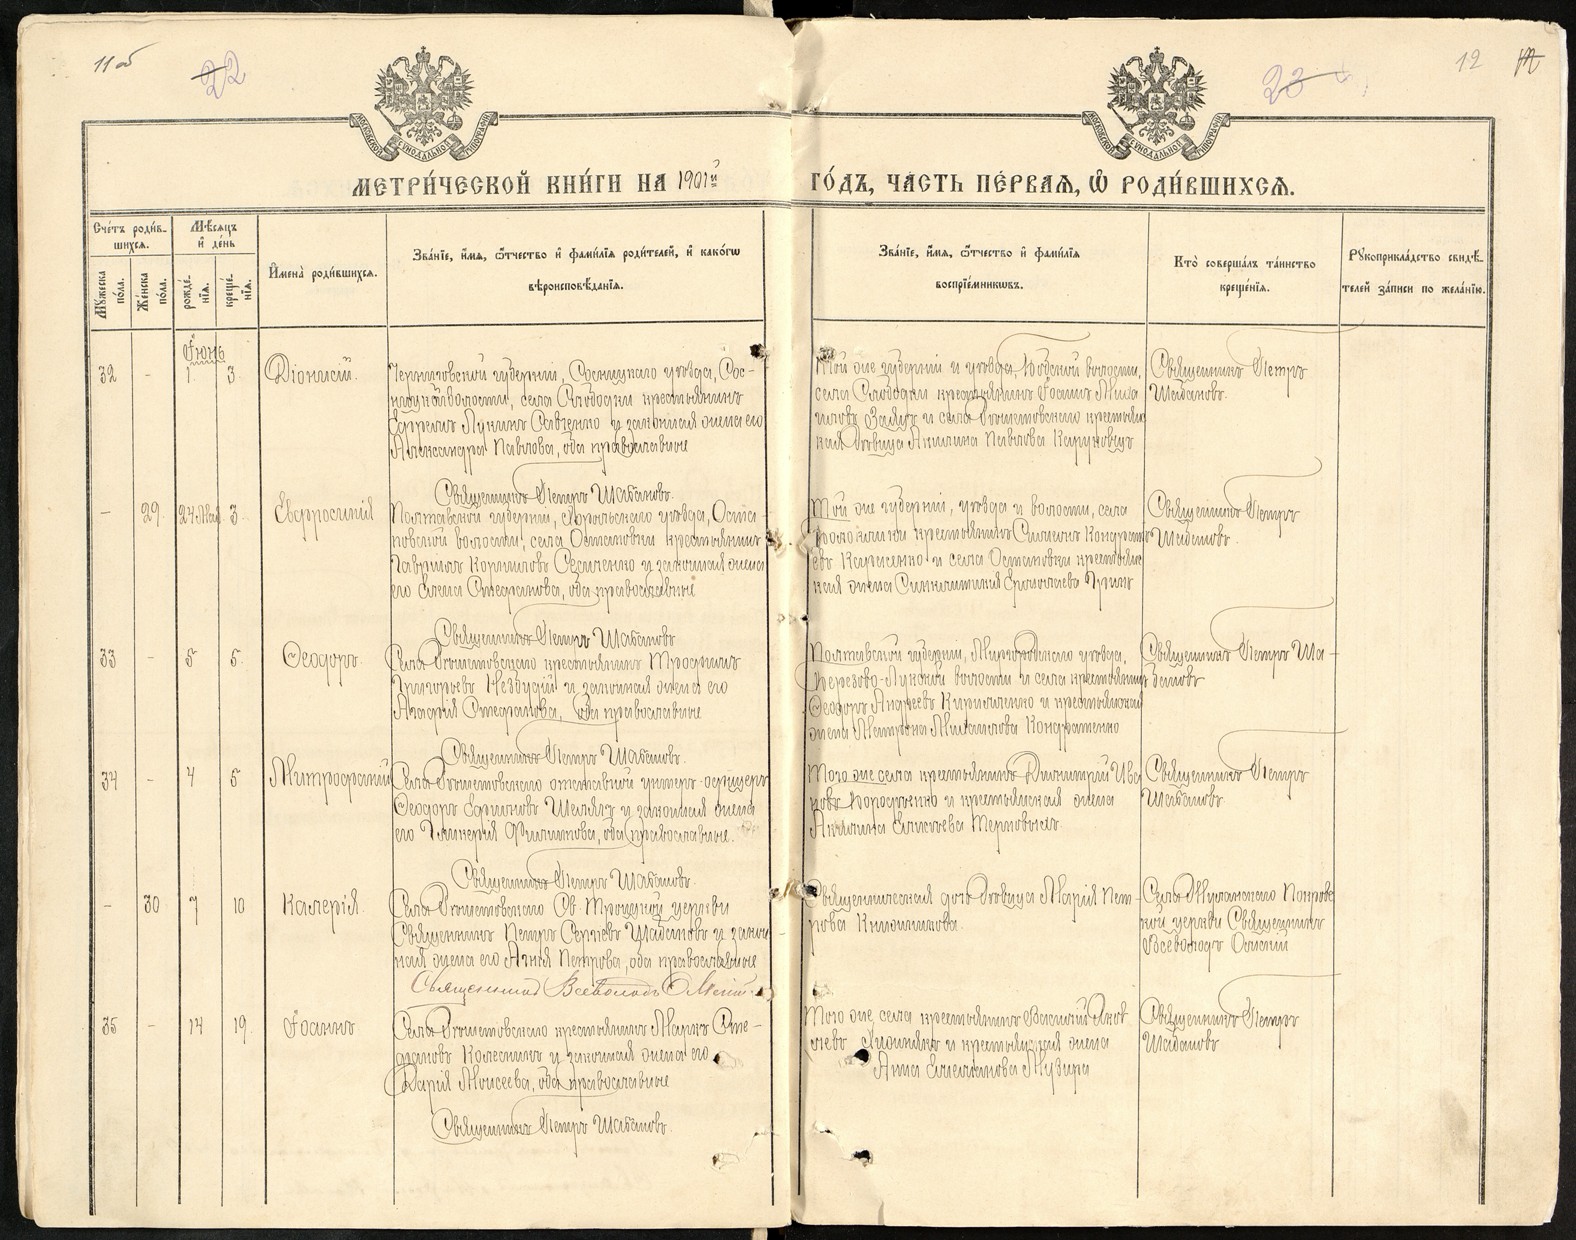 11 об
22
23
12
МЕТРИ́ЧЕСКОЙ КНИ́ГИ НА 1901й ГО́ДЪ, ЧА́СТЬ ПЕ́РВАѦ, Ѿ РОДИ́ВШИХСѦ.
Сче́тъ роди́в-
шихсѧ.
Мѣ́сѧцъ
и҆ де́нь
Мꙋ́жеска по́ла.
Же́нска по́ла.
рожде́-
нїѧ.
креще́-
нїѧ.
И҆мена̀ роди́вшихсѧ.
Зва́нїе, и҆́мѧ, ѻ҆́тчество и҆ фами́лїѧ роди́телей, и҆ како́гѡ
вѣроисповѣ́данїѧ.
Зва́нїе, и҆́мѧ, ѻ҆́тчество и҆ фами́лїѧ
воспрїе́мникѡвъ.
Кто̀ соверша́лъ та́инство
креще́нїѧ.
Рꙋкоприкла́дство свидѣ́-
телей за́писи по жела́нїю.
Іюнь
32 - 1 3 Діонисій.
Черниговской губерніи, Сосницкаго уѣзда, Сос-
ницкой волости, села Слободки крестьянинъ
Лукинъ Савченко и законная жена его
Александра Павлова, оба православные
Священникъ Петръ Шабановъ.
Той же губерніи и уѣзда, волости,
села Слободки крестьянинъ Іоаннъ Миха
иловъ Заяцъ и села крестьян
ская дѣвица Акилина Павлова
Священникъ Петръ
Шабановъ.
- 29 24 Мая 3 Евфросинія
Полтавской губерніи, Хорольскаго уѣзда, Оста
повской волости, села Остаповки крестьянинъ
Гавріилъ Корниловъ и законная жена
его Елена Стефанова, оба православные
Священникъ Петръ Шабановъ
Той же губерніи, уѣзда и волости, села
крестьянинъ Симеонъ Кондрать
евъ и села Остаповки крестьян
ская жена Синклитикія
Священникъ Петръ
Шабановъ.
33 - 5 5. Ѳеодоръ.
Села крестьянинъ Трофимъ
Григорьевъ и законная жена его
Агафія Стефанова, оба православные
Священникъ Петръ Шабановъ.
Полтавской губерніи, Миргородскаго уѣзда,
Березово-Лукской волости и села крестьянинъ
Ѳеодоръ Андреевъ Кириленко и крестьянская
жена Матрона Михайлова Кондратенко
Священникъ Петръ Ша-
бановъ
34 - 4 5 Митрофаній
Села отставной унтеръ-офицеръ
Ѳеодоръ и законная жена
его Гликерія Филиппова, оба православные.
Священникъ Петръ Шабановъ.
Того же села крестьянинъ Димитрій Ива
новъ и крестьянская жена
Акилина Елисѣева
Священникъ Петръ
Шабановъ.
- 30 7 10 Калерія.
Села Св. Троицкой церкви
Священникъ Петръ Сергѣевъ Шабановъ и закон
ная жена его Агнія Петрова, оба православные
Священникъ Всеволодъ
Священническая дочь дѣвица Марія Пет-
рова
Села Покров
кой церкви Священникъ
Всеволодъ
35 - 14 19. Іоаннъ
Села крестьянинъ Марко Сте-
фановъ Колесникъ и законная жена его
Дарія Моисеева, оба православные
Священникъ Петръ Шабановъ.
Того же села крестьянинъ Василій Яков
левъ и крестьянская жена
Анна Музыра
Священникъ Петръ
Шабановъ